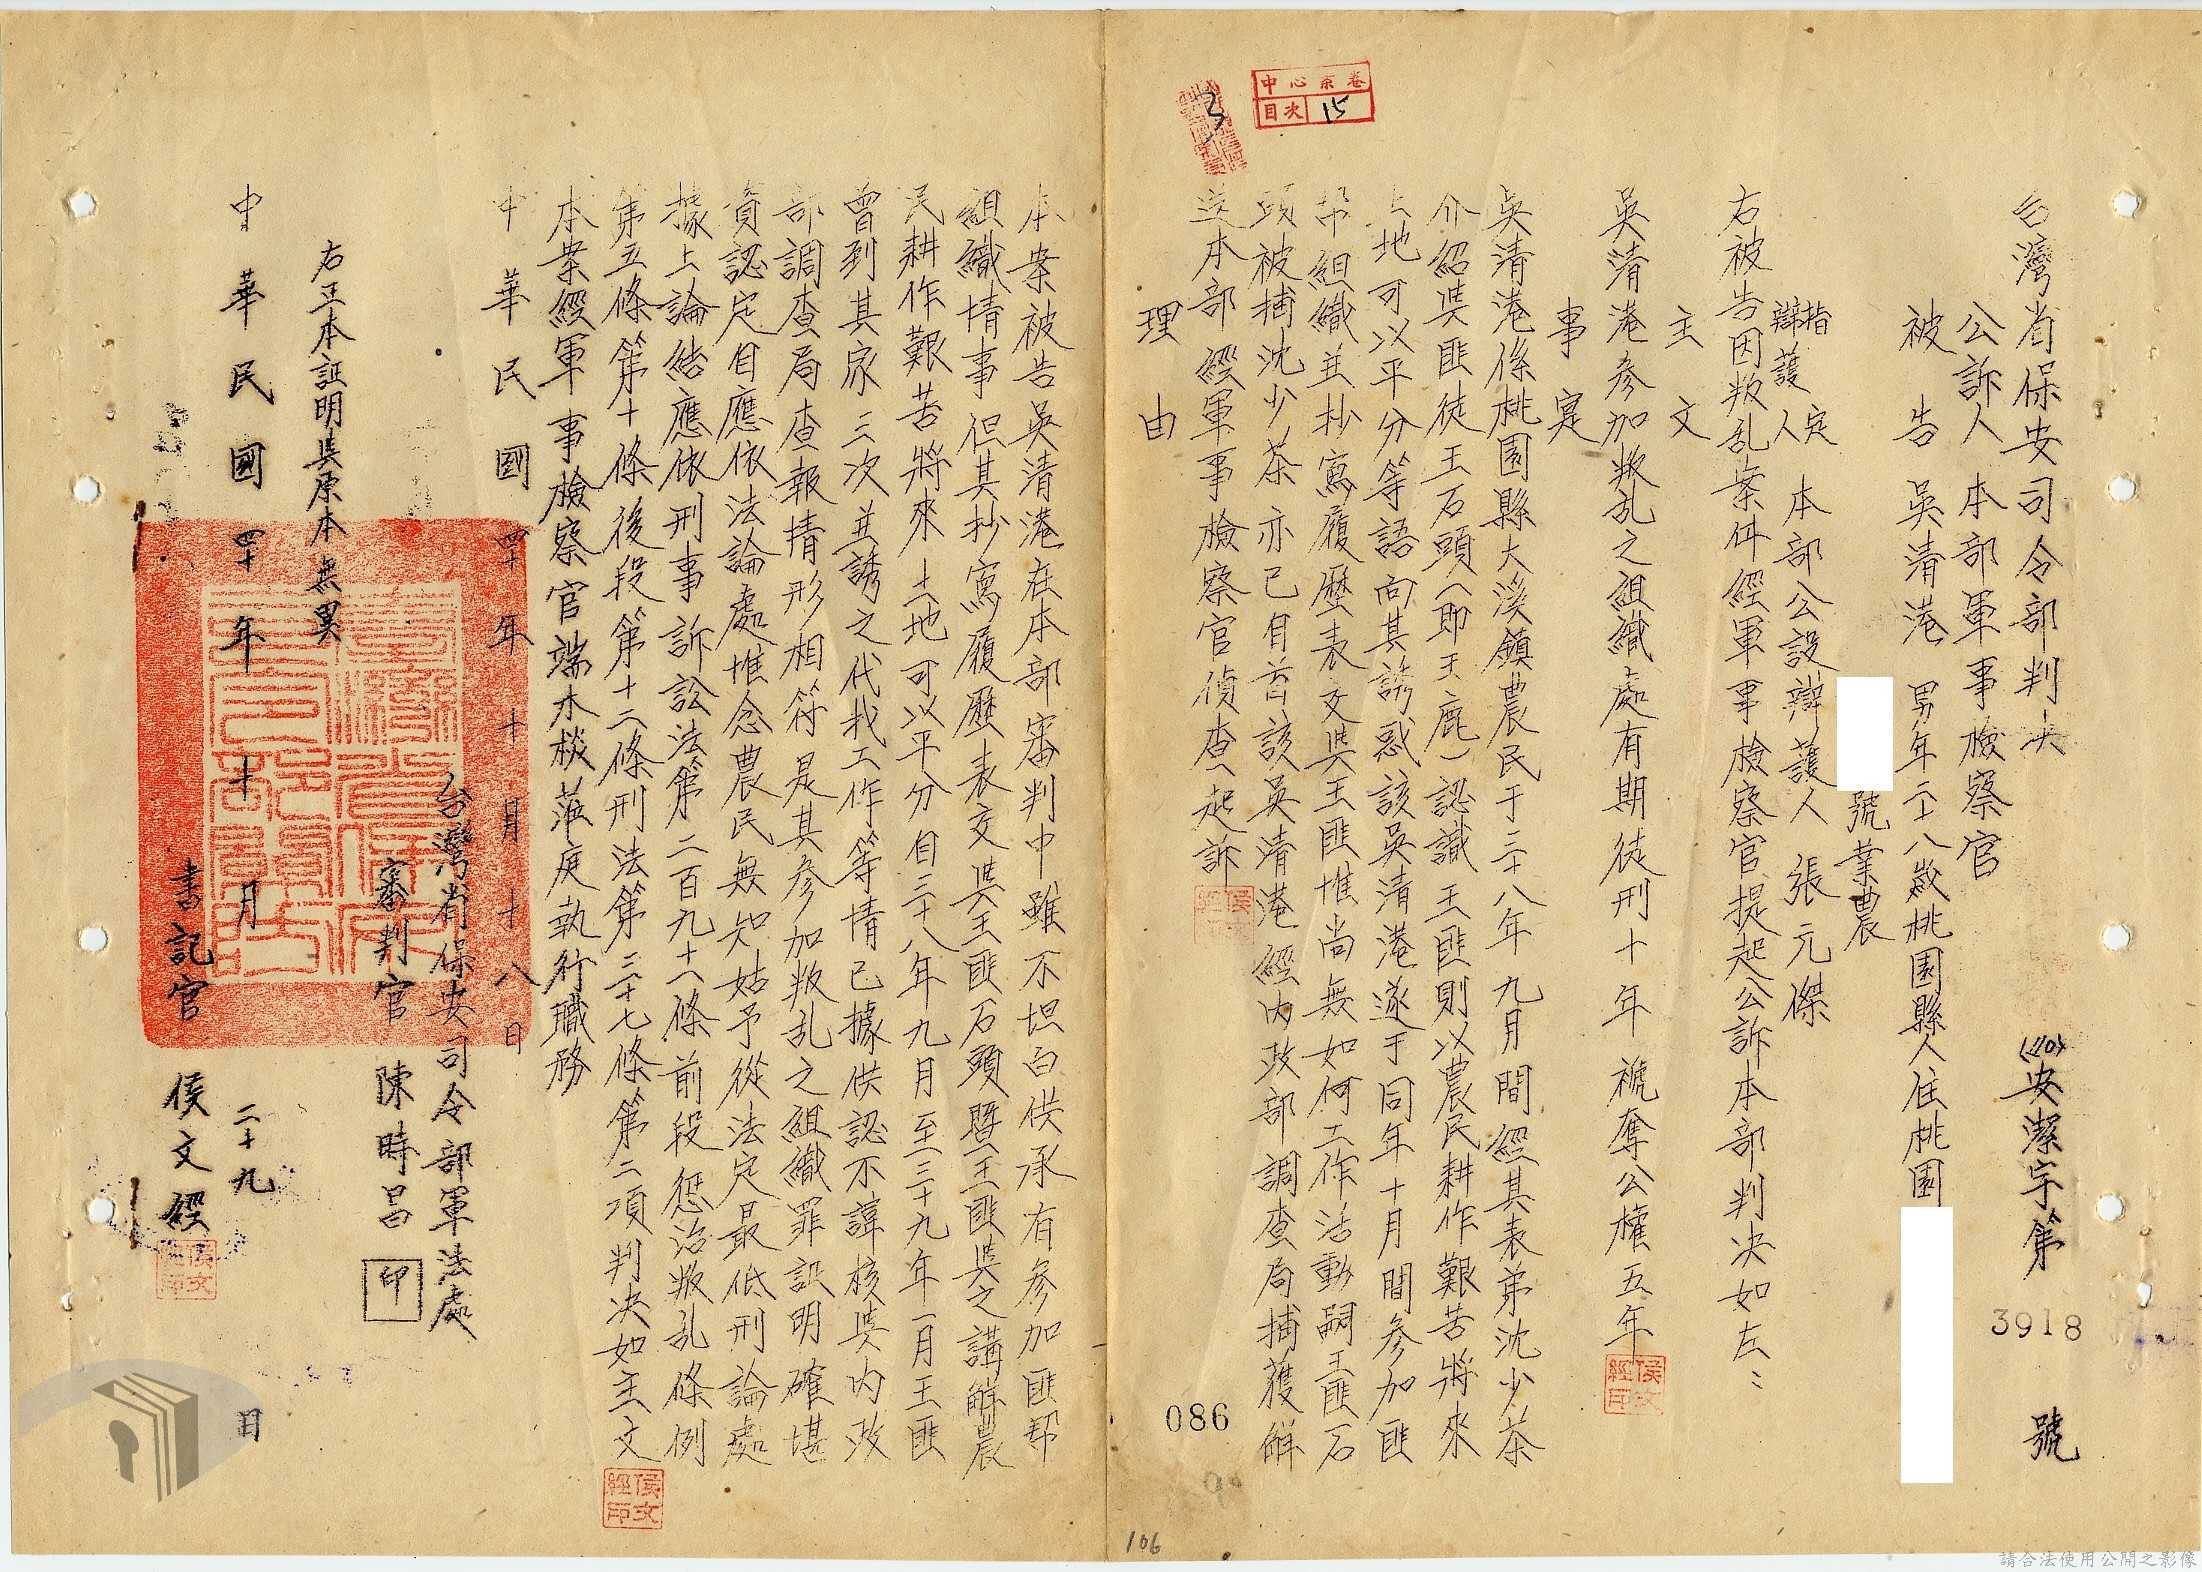 中心案卷
目次 15
台灣省保安司令部判決
(40)安潔字第3918號
公訴人 本部軍事檢察官
被告 吳清港 男年二十八歲桃園縣人住桃園
號業農
指定辯護人 本部公設辯護人 張元傑
右被告因叛乱案件經軍事檢察官提起公訴本部判決如左：
主文
吳清港參加叛乱之組織處有期徒刑十年褫奪公權五年
事實
吳清港係桃園縣大溪鎮農民于三十八年九月間經其表弟沈少荼
介紹與匪徒王石頭（即王鹿）認識王匪則以農民耕作艱苦將來
土地可以平分等語向其誘惑該吳清港遂于同年十月間參加匪
帮組織並抄寫履歷表交與王匪惟尚無如何工作活動嗣王匪石
頭被捕沈少荼亦已自首該吳清港經內政部調查局捕獲解
送本部經軍事檢察官偵查起訴
理由
本案被告吳清港在本部審判中雖不坦白供承有參加匪帮
組織情事但其抄寫履歷表交與王匪石頭暨王匪與之講解農
民耕作艱苦將來土地可以平分自三十八年九月至三十九年一月王匪
曾到其家三次並誘之代找工作等情已據供認不諱核與內政
部調查局查報情形相符是其參加叛乱之組織罪証明確堪
資認定自應依法論處惟念農民無知姑予從法定最低刑論處
據上論結應依刑事訴訟法第二百九十一條前段懲治叛乱條例
第五條第十條後段第十二條刑法第三十七條第二項判決如主文
本案經軍事檢察官端木棪蒞庭執行職務
中華民國四十年十月十八日
台灣省保安司令部軍法處
審判官 陳時昌 印
右正本証明與原本無異
中華民國四十年十月二十九日
書記官 侯文經
侯文經印
086
106
請合法使用公開之影像